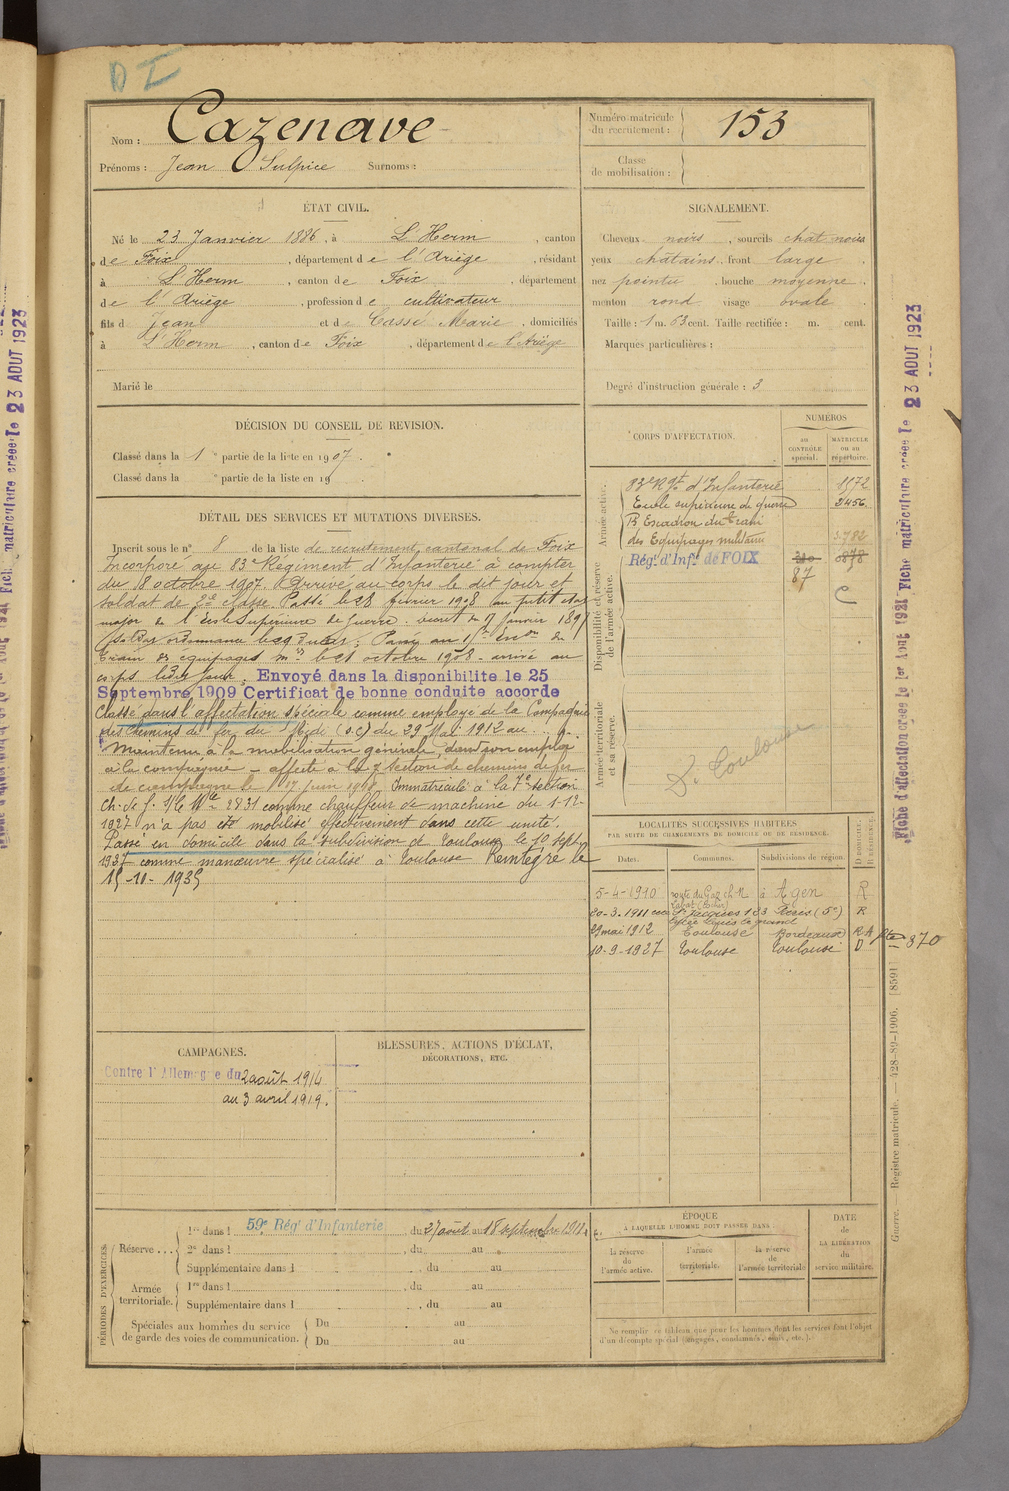 D I
Nom : Cazenave
Prénoms : Jean Sulpice Surnoms :
Numéro matricule du recrutement : 153
Classe de mobilisation :
ÉTAT CIVIL.
Né le 23 Janvier 1886, à L'Herm, canton
de Foix, département de l'Ariège, résidant
à L'Herm, canton de Foix, département
de l'Ariège, profession de cultivateur
fils de Jean et de Cassé Marie, domiciliés
à L'Herm, canton de Foix, département de l'Ariège
Marié le
SIGNALEMENT.
Cheveux noirs, sourcils chat noirs
yeux chatains, front large
nez pointu, bouche moyenne,
menton rond visage ovale
Taille : 1 m. 63 cent. Taille rectifiée : m. cent.
Marques particulières :
Degré d'instruction générale : 3
DÉCISION DU CONSEIL DE REVISION.
Classé dans la 1e partie de la liste en 1907.
Classé dans la e partie de la liste en 19
DÉTAIL DES SERVICES ET MUTATIONS DIVERSES.
Inscrit sous le n° 8 de la liste de recrutement cantonal de Foix
Incorporé au 83e Régiment d'Infanterie à compter
du 8 octobre 1907. Arrivé au corps le dit jour et
soldat de 2e classe. Passé le 28 février 1908 au petit état
major de l'école Supérieure de Guerre. décret du 17 Janvier 189
Passé au 1er Eson du
train des équipages mres le 21 octobre 1908. arrivé au
corps le dit jour. Envoyé dans la disponibilite le 25
Septembre 1909 Certificat de bonne conduite accorde
Classé dans l'affectation spéciale comme employé de la Compagnie
des Chemins de fer du Midi (S.C) du 29 Mai 1912 au
Maintenu à la mobilisation générale dans son emploi
à la compagnie - affecté à la 7e section de chemins de fer
de campagne le 17 Juin 19 Immatriculé à la 7e section
Ch. de f. s/le No 2831 comme chauffeur de machine du 1-12-
1927 n'a pas été mobilisé effectivement dans cette unité.
Passé en domicile dans la subdivision de Toulouse le 10 Septbre
1937 comme manœuvre spécialisé à Toulouse Réintégré le
15-10-1935
CORPS D'AFFECTATION.
NUMÉROS
AU CONTRÔLE spécial.
MATRICULE ou au répertoire.
Armée active.
83e Rgt d'Infanterie
École supérieure de guerre 2456
Escadron du train
des Equipages militaire 3782
Disponibilité et réserve de l'armée active.
Régt d'Infie de FOIX 0878
87
Armée territoriale et sa réserve.
D. Toulouse
LOCALITÉS SUCCESSIVES HABITÉES
PAR SUITE DE CHANGEMENTS DE DOMICILE OU DE RÉSIDENCE.
Dates. Communes. Subdivisions de région. D DOMICILE. R RÉSIDENCE.
5-4-1910 route du Gaz à Agen R
20-3-1911 St Jacques 123 Paris (5e) R
lycée Louis le grand
29 mai 1912 Toulouse Bordeaux R
10-9-1927 Toulouse Toulouse D
870
CAMPAGNES.
Contre l'Allemagne du 2 août 1914
au 3 avril 1919.
BLESSURES, ACTIONS D'ÉCLAT,
DÉCORATIONS, ETC.
PÉRIODES D'EXERCICES.
Réserve ...
1re dans l 59e Régt d'Infanterie, du 27 août au 18 septembre 1911.
2e dans l , du au
Supplémentaire dans l , du au
Armée territoriale.
1re dans l , du au
Supplémentaire dans l , du au
Spéciales aux hommes du service de garde des voies de communication.
Du au
Du au
ÉPOQUE
À LAQUELLE L'HOMME DOIT PASSER DANS :
la réserve de l'armée active.
l'armée territoriale.
la réserve de l'armée territoriale
DATE de LA LIBÉRATION du service militaire.
Ne remplir ce tableau que pour les hommes dont les services font l'objet
d'un décompte spécial (engagés, condamnés, omis, etc.).
Guerre. Registre matricule. — 428-89-1906. [8591]
Fiche d'affectation créée le 1er Août 1921 Fiche matriculaire créée le 23 AOUT 1923